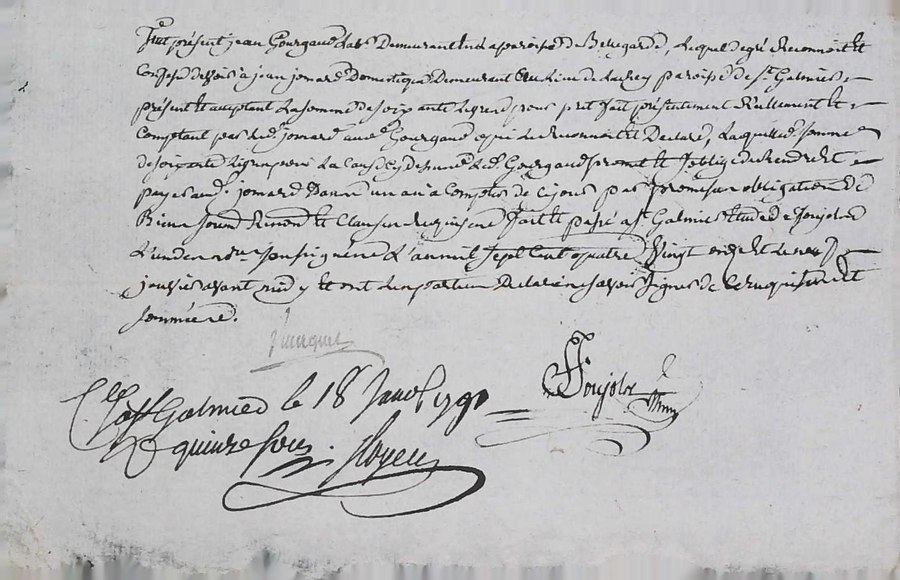 Fut présent jean Gourgaud Lab. Demeurant En la paroisse de Bellegarde, Lequel de gré Reconnoit Et
Confesse devoir à jean jomard Domestique Demeurant Au Lieu de paroisse de St. Galmier
présent Et acceptant La Somme de soixante Livres pour pret fait présentement Réellement Et
Comptant par led. jomard aud. Gourgaud qui Le Reconnoit Et Déclaré, Laquelle d. Somme
de soixante Livres pour La Cause Cy dessus Led. Gourgaud promet Et s'oblige de Rendre Et
payer aud. jomard Dans un an à Compter de Ce jour par promesse obligation de
Biens soumis. Renon. Et Clauses Requises fait Et passé a St. Galmier Etude de Soujolon
L'un des no.res soussignés L'an mil Sept Cent quatre Vingt dix Et Le neuf
janvier avant midy Et ont Les parties Déclaré ne savoir signer de Ce Enquises Et
sommées.
Soujolon
Clé à St Galmier le 18 Janv. 1790
R quinze sous.